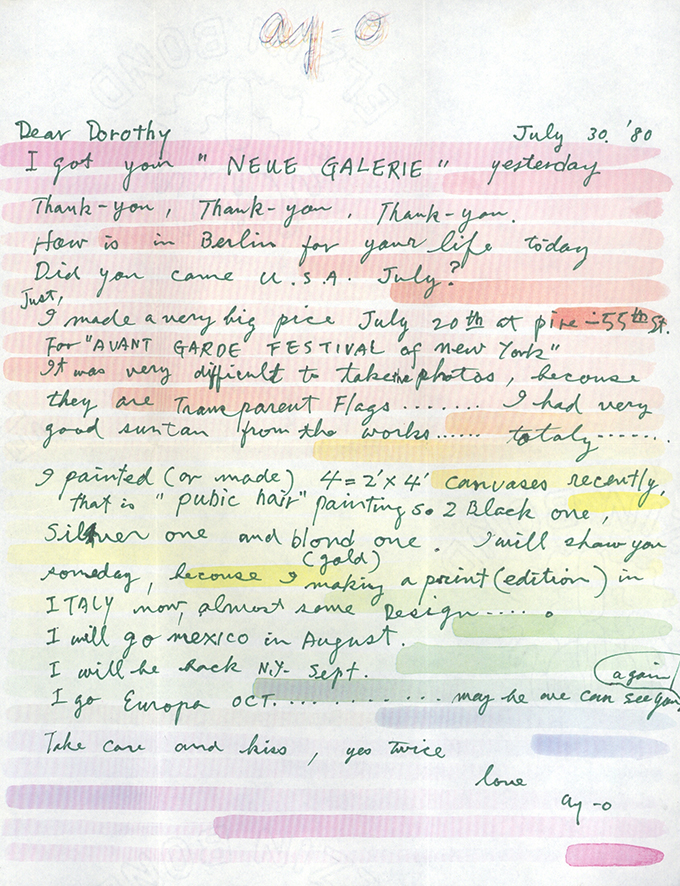 ay-o
Dear Dorothy July 30. '80
I got your "NEUE GALERIE" yesterday
Thank-you, Thank-you, Thank-you.
How is in Berlin for your life today
Did you came U.S.A. July?
Just,
I made a very big pice July 20th at pire -55th St.
For "AVANT GARDE FESTIVAL of new York"
It was very difficult to take photos, becouse
they are Transparent Flags ........ I had very
good suntan from the works...... totaly.......
I painted (or made) 4=2'x4' canvases recently,
that is "pubic hair" painting so 2 Black one,
Silver one and blond one. I will show you
(gold)
someday, becouse I making a print (edition) in
ITALY now, almost same Design.....
I will go mexico in August.
I will be back N.Y. Sept.
again
I go Europa OCT................ may be we can see you
Take care and kiss, yes twice
love
ay-o